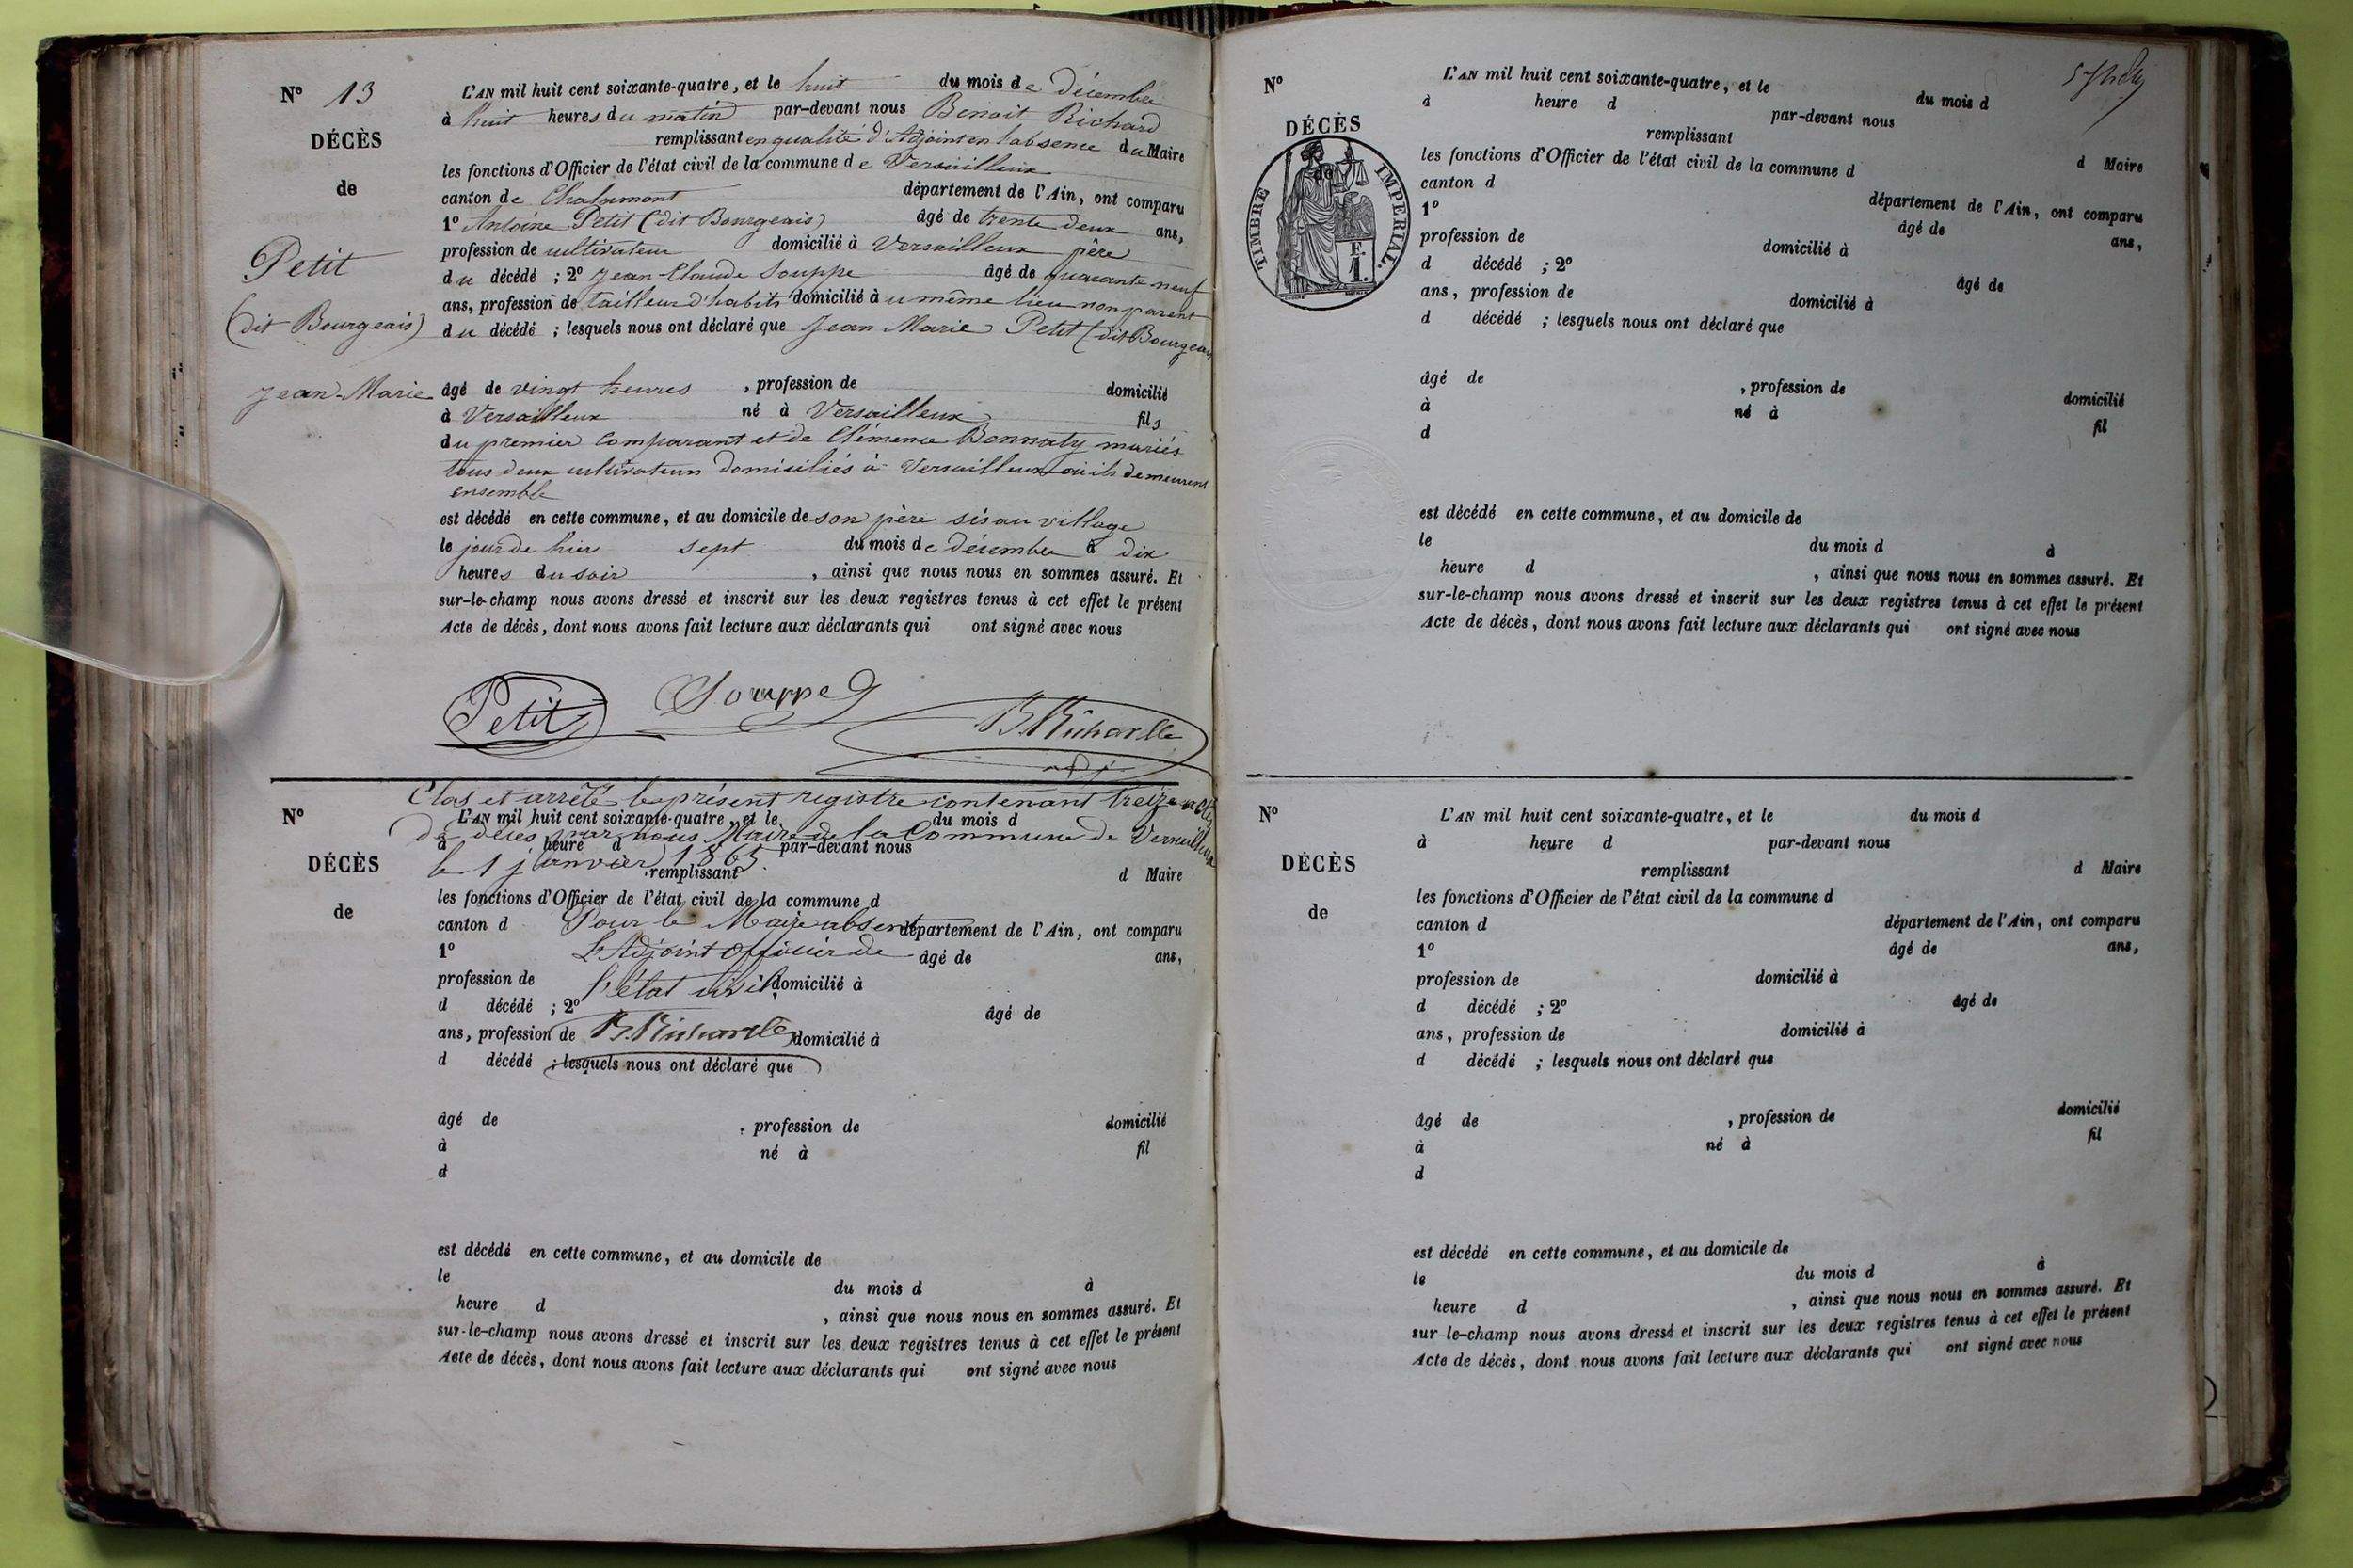 N° 13
DÉCÈS
de
Petit
(dit Bourgeais)
Jean-Marie
L'AN mil huit cent soixante-quatre, et le huit du mois de décembre
à huit heures du matin par-devant nous Benoit Richard
remplissant en qualité d'Adjoint en l'absence du Maire
les fonctions d'Officier de l'état civil de la commune de Versailleux
canton de Chalamont département de l'Ain, ont comparu
1° Antoine Petit (dit Bourgeais) âgé de trente deux ans,
profession de cultivateur domicilié à Versailleux père
du décédé ; 2° Jean-Claude Souppe âgé de quarante neuf
ans, profession de tailleur d'habits domicilié au même lieu non parent
du décédé ; lesquels nous ont déclaré que Jean Marie Petit (dit Bourgeais
âgé de vingt heures , profession de domicilié
à Versailleux né à Versailleux fils
du premier comparant et de Clémence Bonnaty mariés
tous deux cultivateurs domiciliés à Versailleux où ils demeurent
ensemble
est décédé en cette commune, et au domicile de son père sis au village
le jour de hier sept du mois de décembre à dix
heures du soir , ainsi que nous nous en sommes assuré. Et
sur-le-champ nous avons dressé et inscrit sur les deux registres tenus à cet effet le présent
Acte de décès, dont nous avons fait lecture aux déclarants qui ont signé avec nous
Petit Souppe B. Richard
adj
Clos et arrêté le présent registre contenant treize actes
de décès par nous Maire de la Commune de Versailleux
le 1 janvier 1865.
Pour le Maire absent
L'Adjoint officier de
l'état civil
B. Richard
N°
DÉCÈS
de
L'AN mil huit cent soixante-quatre, et le du mois d
à heure d par-devant nous
remplissant d Maire
les fonctions d'Officier de l'état civil de la commune d
canton d département de l'Ain, ont comparu
1° âgé de ans,
profession de domicilié à
d décédé ; 2° âgé de
ans, profession de domicilié à
d décédé ; lesquels nous ont déclaré que
âgé de , profession de domicilié
à né à fil
d
est décédé en cette commune, et au domicile de
le du mois d à
heure d , ainsi que nous nous en sommes assuré. Et
sur-le-champ nous avons dressé et inscrit sur les deux registres tenus à cet effet le présent
Acte de décès, dont nous avons fait lecture aux déclarants qui ont signé avec nous
N°
DÉCÈS
de
TIMBRE IMPÉRIAL.
F.
1.
L'AN mil huit cent soixante-quatre, et le du mois d
à heure d par-devant nous
remplissant d Maire
les fonctions d'Officier de l'état civil de la commune d
canton d département de l'Ain, ont comparu
1° âgé de ans,
profession de domicilié à
d décédé ; 2° âgé de
ans, profession de domicilié à
d décédé ; lesquels nous ont déclaré que
âgé de , profession de domicilié
à né à fil
d
est décédé en cette commune, et au domicile de
le du mois d à
heure d , ainsi que nous nous en sommes assuré. Et
sur-le-champ nous avons dressé et inscrit sur les deux registres tenus à cet effet le présent
Acte de décès, dont nous avons fait lecture aux déclarants qui ont signé avec nous
N°
DÉCÈS
de
L'AN mil huit cent soixante-quatre, et le du mois d
à heure d par-devant nous
remplissant d Maire
les fonctions d'Officier de l'état civil de la commune d
canton d département de l'Ain, ont comparu
1° âgé de ans,
profession de domicilié à
d décédé ; 2° âgé de
ans, profession de domicilié à
d décédé ; lesquels nous ont déclaré que
âgé de , profession de domicilié
à né à fil
d
est décédé en cette commune, et au domicile de
le du mois d à
heure d , ainsi que nous nous en sommes assuré. Et
sur-le-champ nous avons dressé et inscrit sur les deux registres tenus à cet effet le présent
Acte de décès, dont nous avons fait lecture aux déclarants qui ont signé avec nous